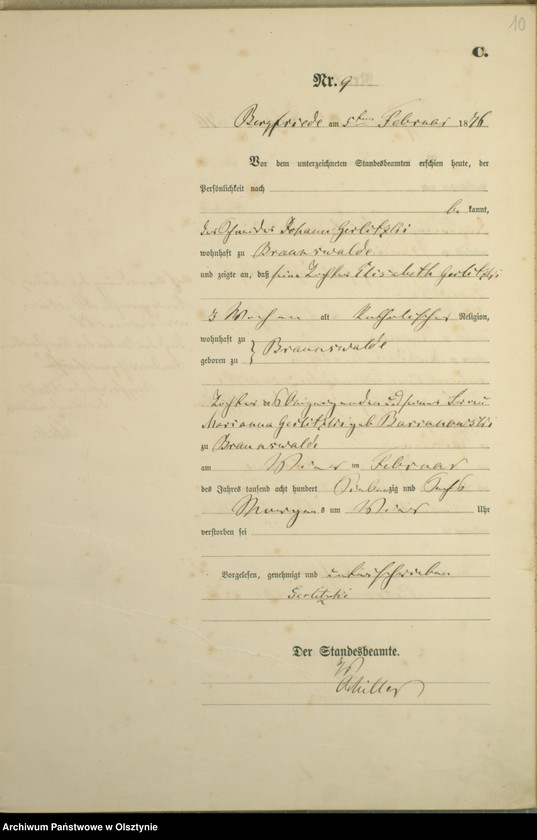 10
C.
Nr. 9
Bergfriede am 5ten Februar 1876
Vor dem unterzeichneten Standesbeamten erschien heute, der
Persönlichkeit nach
be kannt,
der Schneider Johann Gerlitzki
wohnhaft zu Braunswalde
und zeigte an, daß seine Tochter Elisabeth Gerlitzki
3 Wochen alt katholischer Religion,
wohnhaft zu
Braunswalde
geboren zu
Tochter des Anzeigenden und seiner Frau
Marianna Gerlitzki geb Baranowski
zu Braunswalde
am Vierten Februar
des Jahres tausend acht hundert Siebenzig und Sechs
Morgens um Vier Uhr
verstorben sei
Vorgelesen, genehmigt und unterschrieben
Gerlitzki
Der Standesbeamte.
Schiller
Archiwum Państwowe w Olsztynie